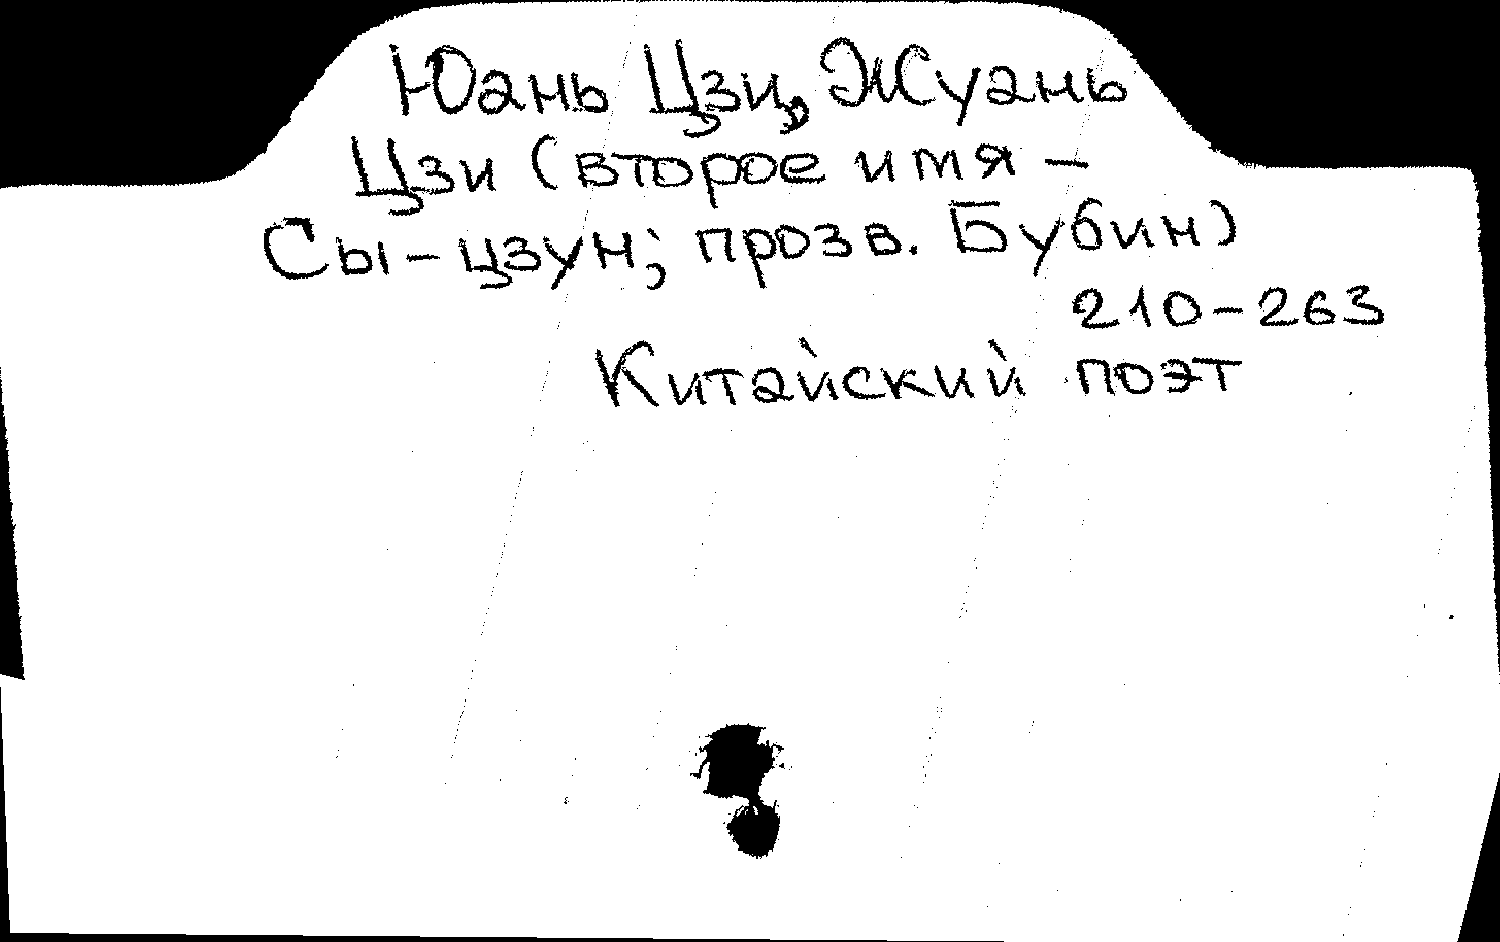 Юань Цзи, Жуань
Цзи (второе имя –
Сы-цзун; прозв. Бубин)
210-263
Китайский поэт